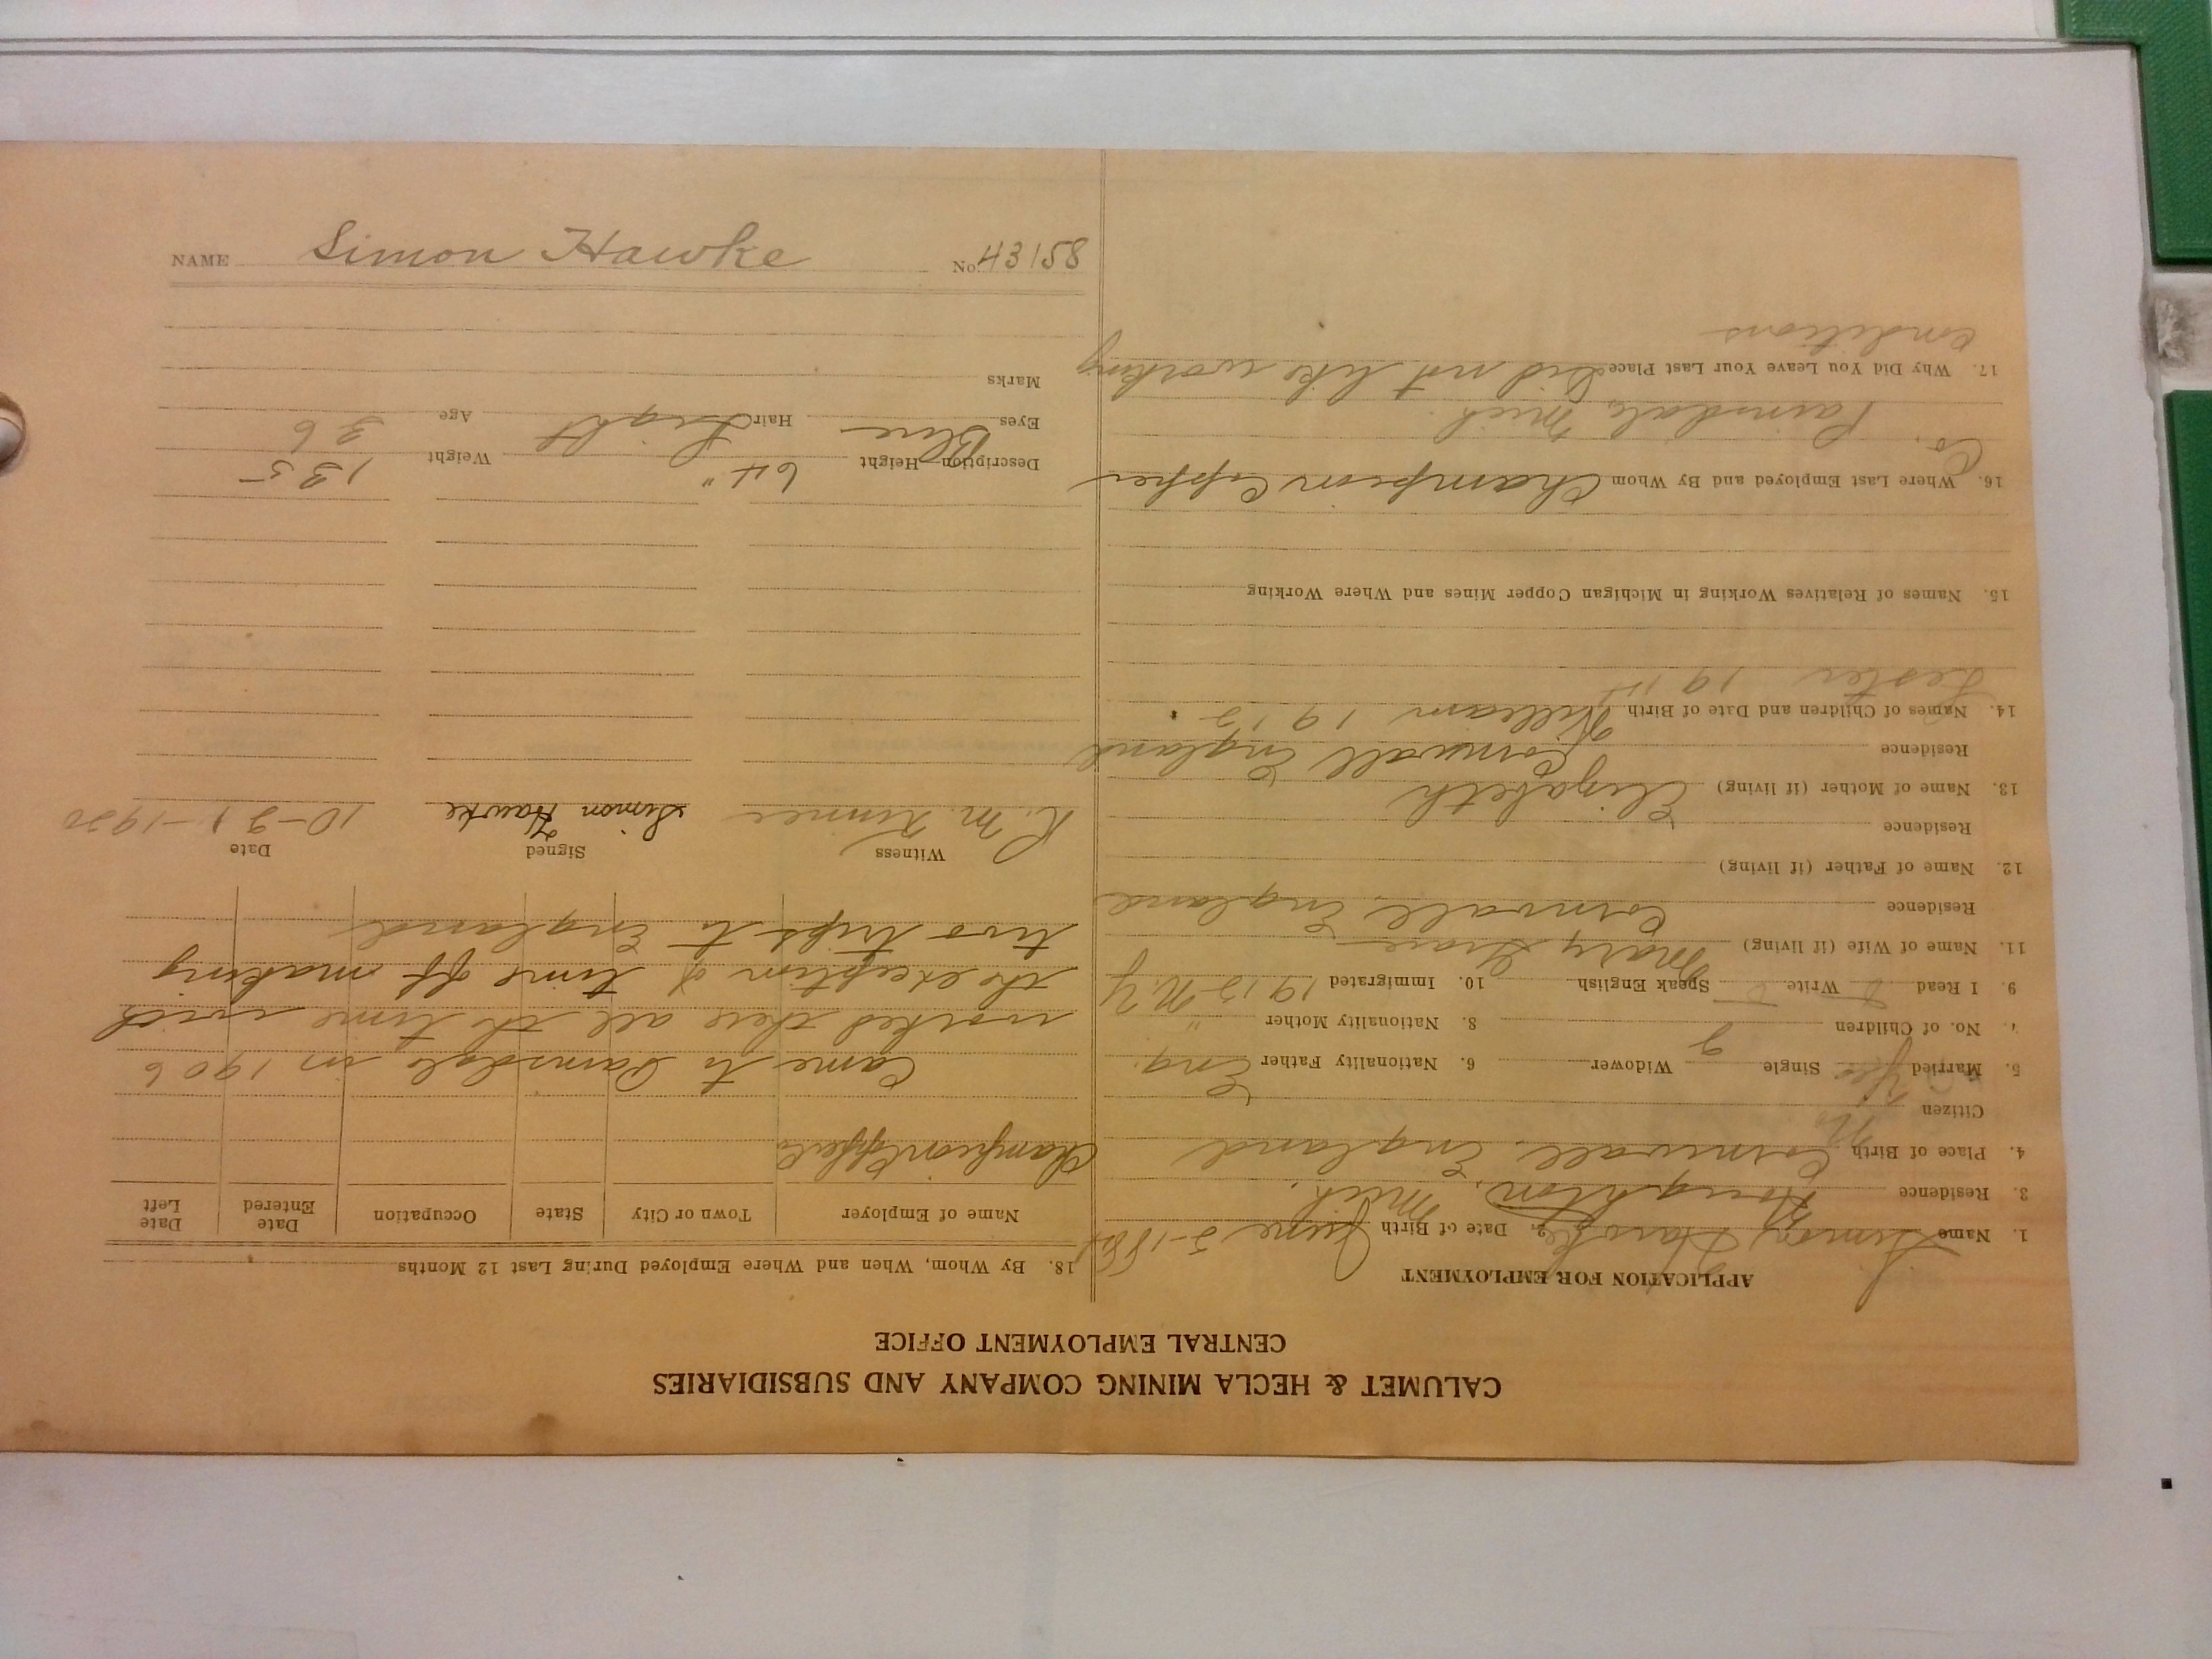 CALUMET & HECLA MINING COMPANY AND SUBSIDIARIES
CENTRAL EMPLOYMENT OFFICE
APPLICATION FOR EMPLOYMENT
1. Name Simon Hawke 2. Date of Birth June 5-1884
3. Residence Houghton, Mich.
4. Place of Birth Cornwall, England
Citizen No
5. Married Yes Single Widower 6. Nationality Father Eng.
7. No. of Children 2 8. Nationality Mother "
9. I Read Write Speak English 10. Immigrated 1913 N.Y
11. Name of Wife (if living) Mary Grace
Residence Cornwall, England
12. Name of Father (if living)
Residence
13. Name of Mother (if living) Elizabeth
Residence Cornwall England
14. Names of Children and Date of Birth William 1913
Lester 1914
15. Names of Relatives Working in Michigan Copper Mines and Where Working
16. Where Last Employed and By Whom Champion Copper
Co. Painsdale, Mich.
17. Why Did You Leave Your Last Place Did not like working
conditions
18. By Whom, When and Where Employed During Last 12 Months
Name of Employer Town or City State Occupation Date Entered Date Left
Champion Copper Co
Came to Painsdale in 1906
worked there all the time with
the exception of time off making
two trips to England
Witness Signed Date
R. M. Simon Hawke 10-21-1920
Description—Height 64" Weight 135
Eyes Blue Hair Light Age 36
Marks
NAME Simon Hawke No. 43158